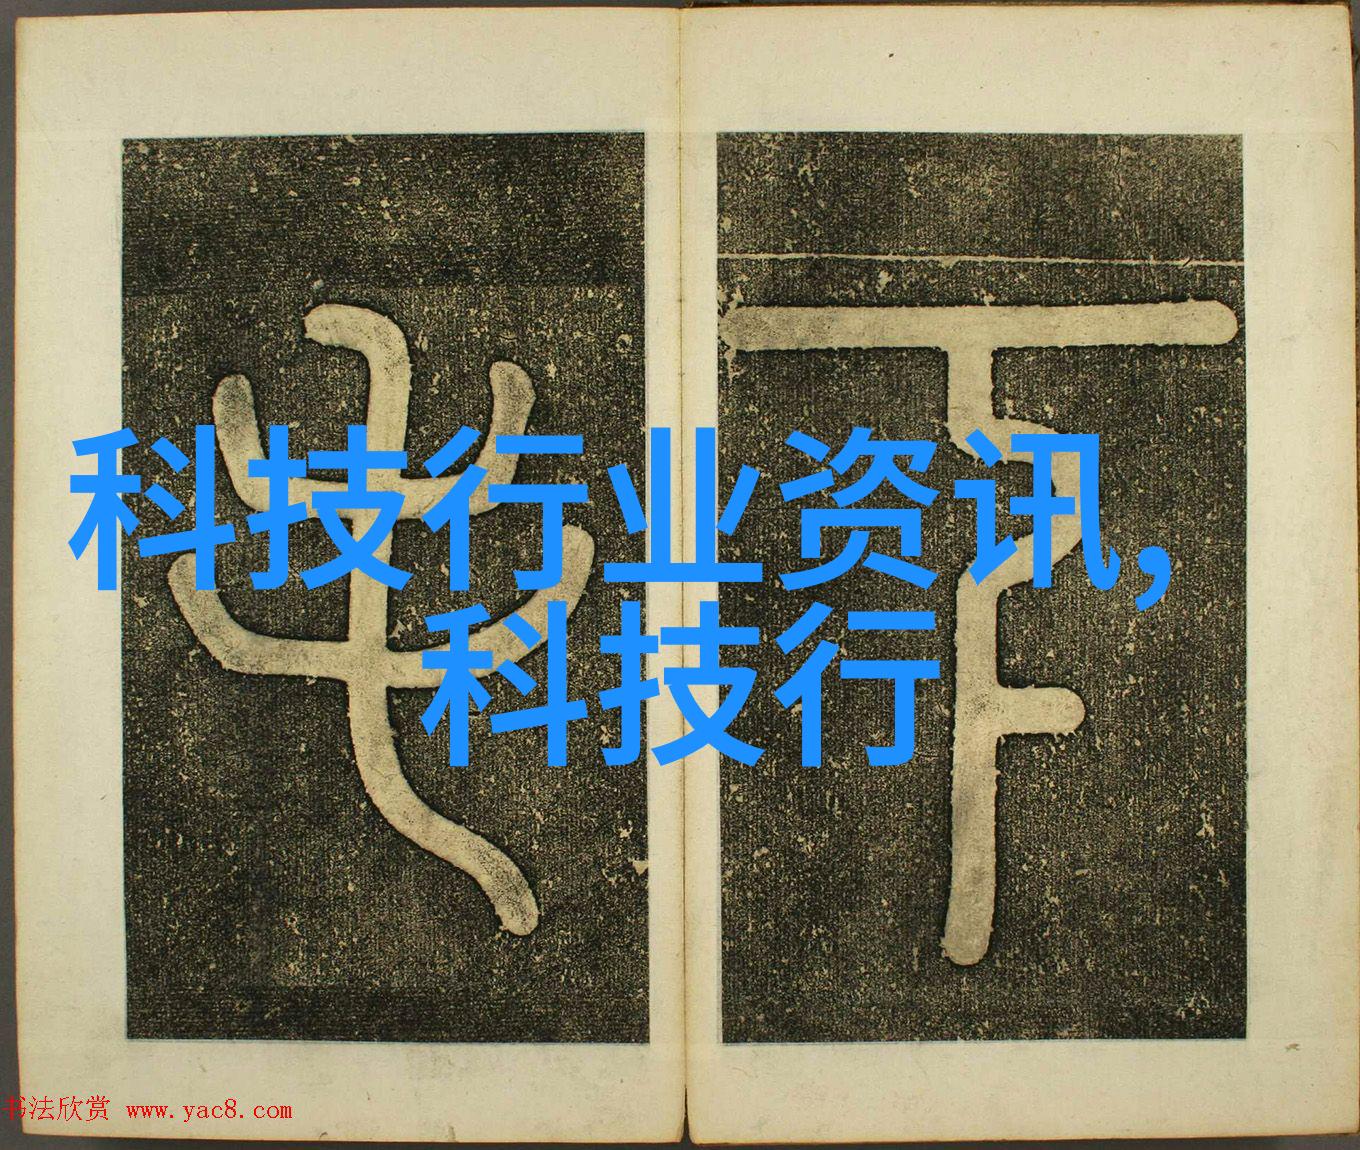 科技行业资讯,
科技行
书法欣赏 www.yac8.com